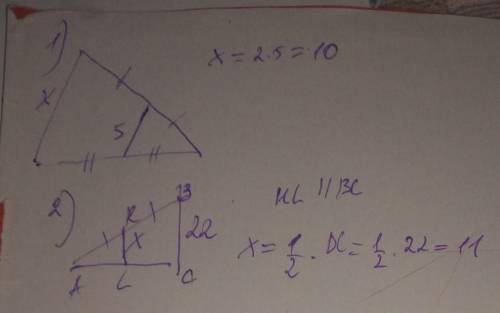 1)
x = 2·5 = 10
x
5
2)
B
K
22
x
A
L
C
KL || BC
x = 1/2 · BC = 1/2 · 22 = 11